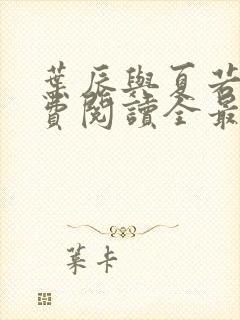 葉辰與夏若
費閱讀全最
葉卡